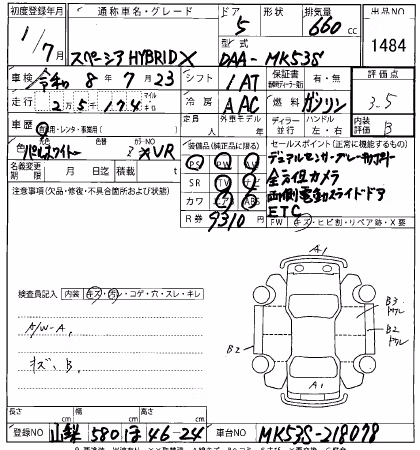 初度登録年月 通称車名・グレード ドア 形状 排気量 出品NO
1/7 スペーシア HYBRID X 5 660cc 1484
型式 DAA-MK53S
車検 令和 8年 7月 23 シフト 1AT 保証書 有・無 評価点
走行 25,174 マイル キロ 冷房 AAC 燃料 ガソリン 3.5
車歴 自家用・レンタ・事業用( ) 定員 人 外車モデル 年 ディーラー 並行 ハンドル 左・右 内装評価 B
色 パールホワイト 色替 カラーNO ZVR 装備品(純正品に限る) セールスポイント(正常に機能するもの)
名義変更期限 月 日迄 積載 t PS PW ナビ デュアルセンサーブレーキサポート
注意事項(欠品・修復・不具合箇所および状態) SR TV 全方位カメラ
カワ エアB ABS 両側電動スライドドア
R券 9310 ETC
FW キズ・ヒビ割・リペア跡・X要
検査員記入 内装 キズ・汚レ・コゲ・穴・スレ・キレ
A1
A/W-A,
キズ、B,
B3
B2
B2
A1
長さ cm 幅 cm 高さ cm
登録NO 山梨 580 ほ 46-24 車台NO MK53S-218078